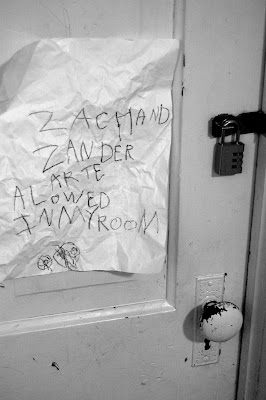 ZACHAND
ZANDER
ARTE
ALOWED
INMYROOM